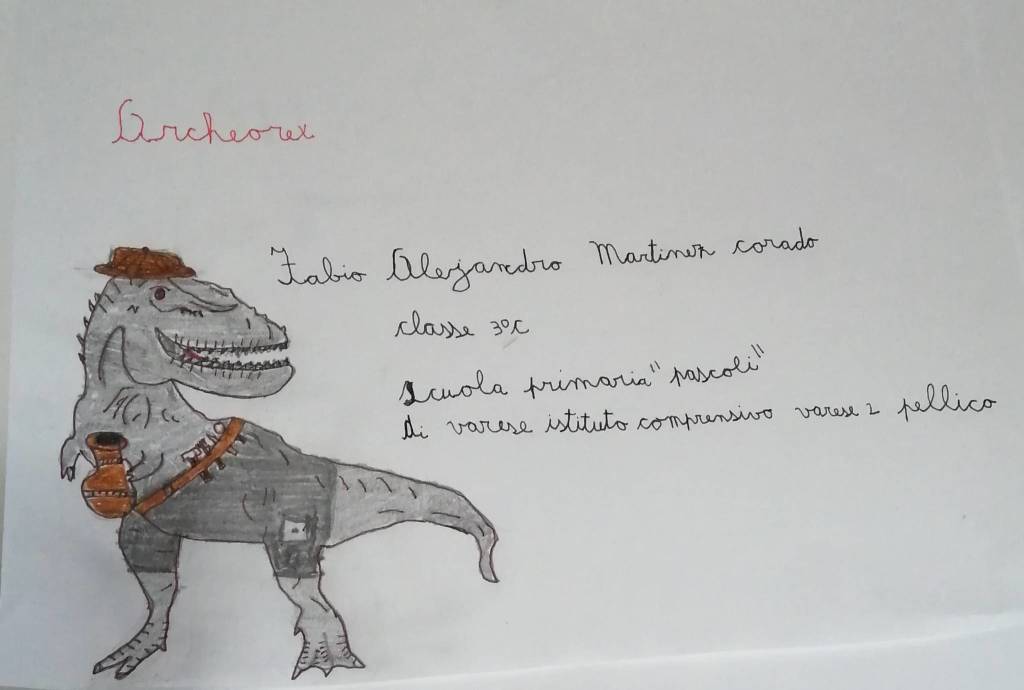 Archeorex
Fabio Alejandro Martinez corado
classe 3°C
scuola primaria "pascoli"
di varese istituto comprensivo varese 2 pellico